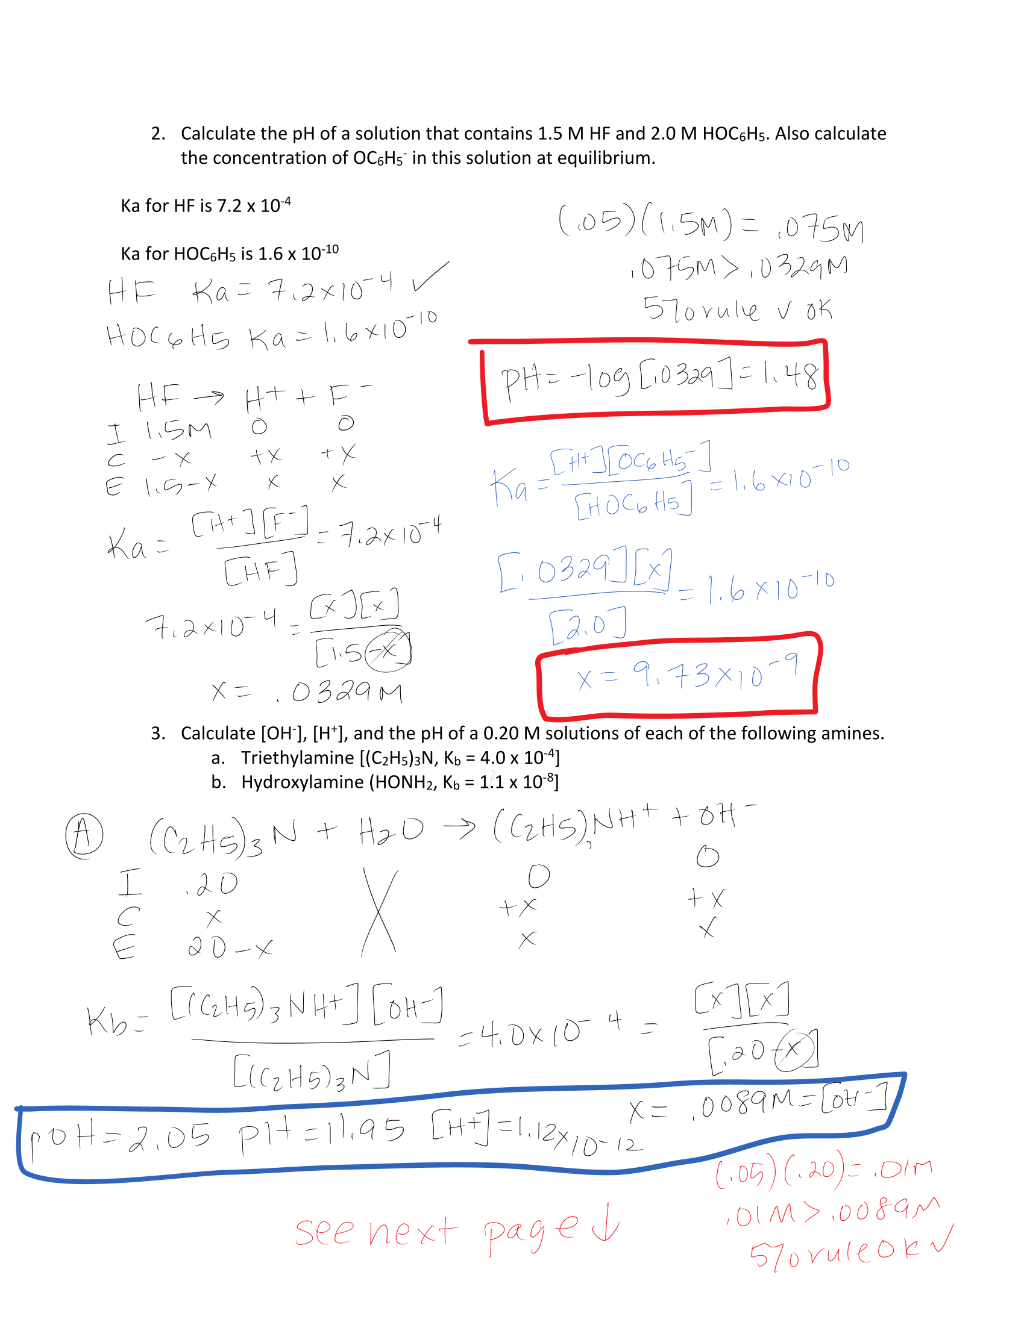 2. Calculate the pH of a solution that contains 1.5 M HF and 2.0 M HOC₆H₅. Also calculate
the concentration of OC₆H₅⁻ in this solution at equilibrium.
Ka for HF is 7.2 x 10⁻⁴
Ka for HOC₆H₅ is 1.6 x 10⁻¹⁰
HF Ka = 7.2x10⁻⁴ ✓
HOC₆H₅ Ka = 1.6x10⁻¹⁰
HF → H⁺ + F⁻
I 1.5M 0 0
C -x +x +x
E 1.5-x x x
Ka = [H⁺][F⁻] / [HF] = 7.2x10⁻⁴
7.2x10⁻⁴ = [x][x] / [1.5-x]
x = .0329M
(.05)(1.5M) = .075M
.075M > .0329M
5% rule ✓ ok
pH = -log[.0329] = 1.48
Ka = [H⁺][OC₆H₅⁻] / [HOC₆H₅] = 1.6x10⁻¹⁰
[.0329][x] / [2.0] = 1.6x10⁻¹⁰
x = 9.73x10⁻⁹
3. Calculate [OH⁻], [H⁺], and the pH of a 0.20 M solutions of each of the following amines.
a. Triethylamine [(C₂H₅)₃N, K_b = 4.0 x 10⁻⁴]
b. Hydroxylamine (HONH₂, K_b = 1.1 x 10⁻⁸]
A (C₂H₅)₃N + H₂O → (C₂H5)₃NH⁺ + OH⁻
I .20 X 0 0
C x +x +x
E 20-x x x
Kb = [(C₂H5)₃NH⁺][OH⁻] / [(C₂H5)₃N] = 4.0x10⁻⁴ = [x][x] / [.20-x]
x = .0089M = [OH⁻]
pOH = 2.05 pH = 11.95 [H⁺] = 1.12x10⁻¹²
(.05)(.20) = .01M
.01M > .0089M
5% rule ok ✓
see next page ↓